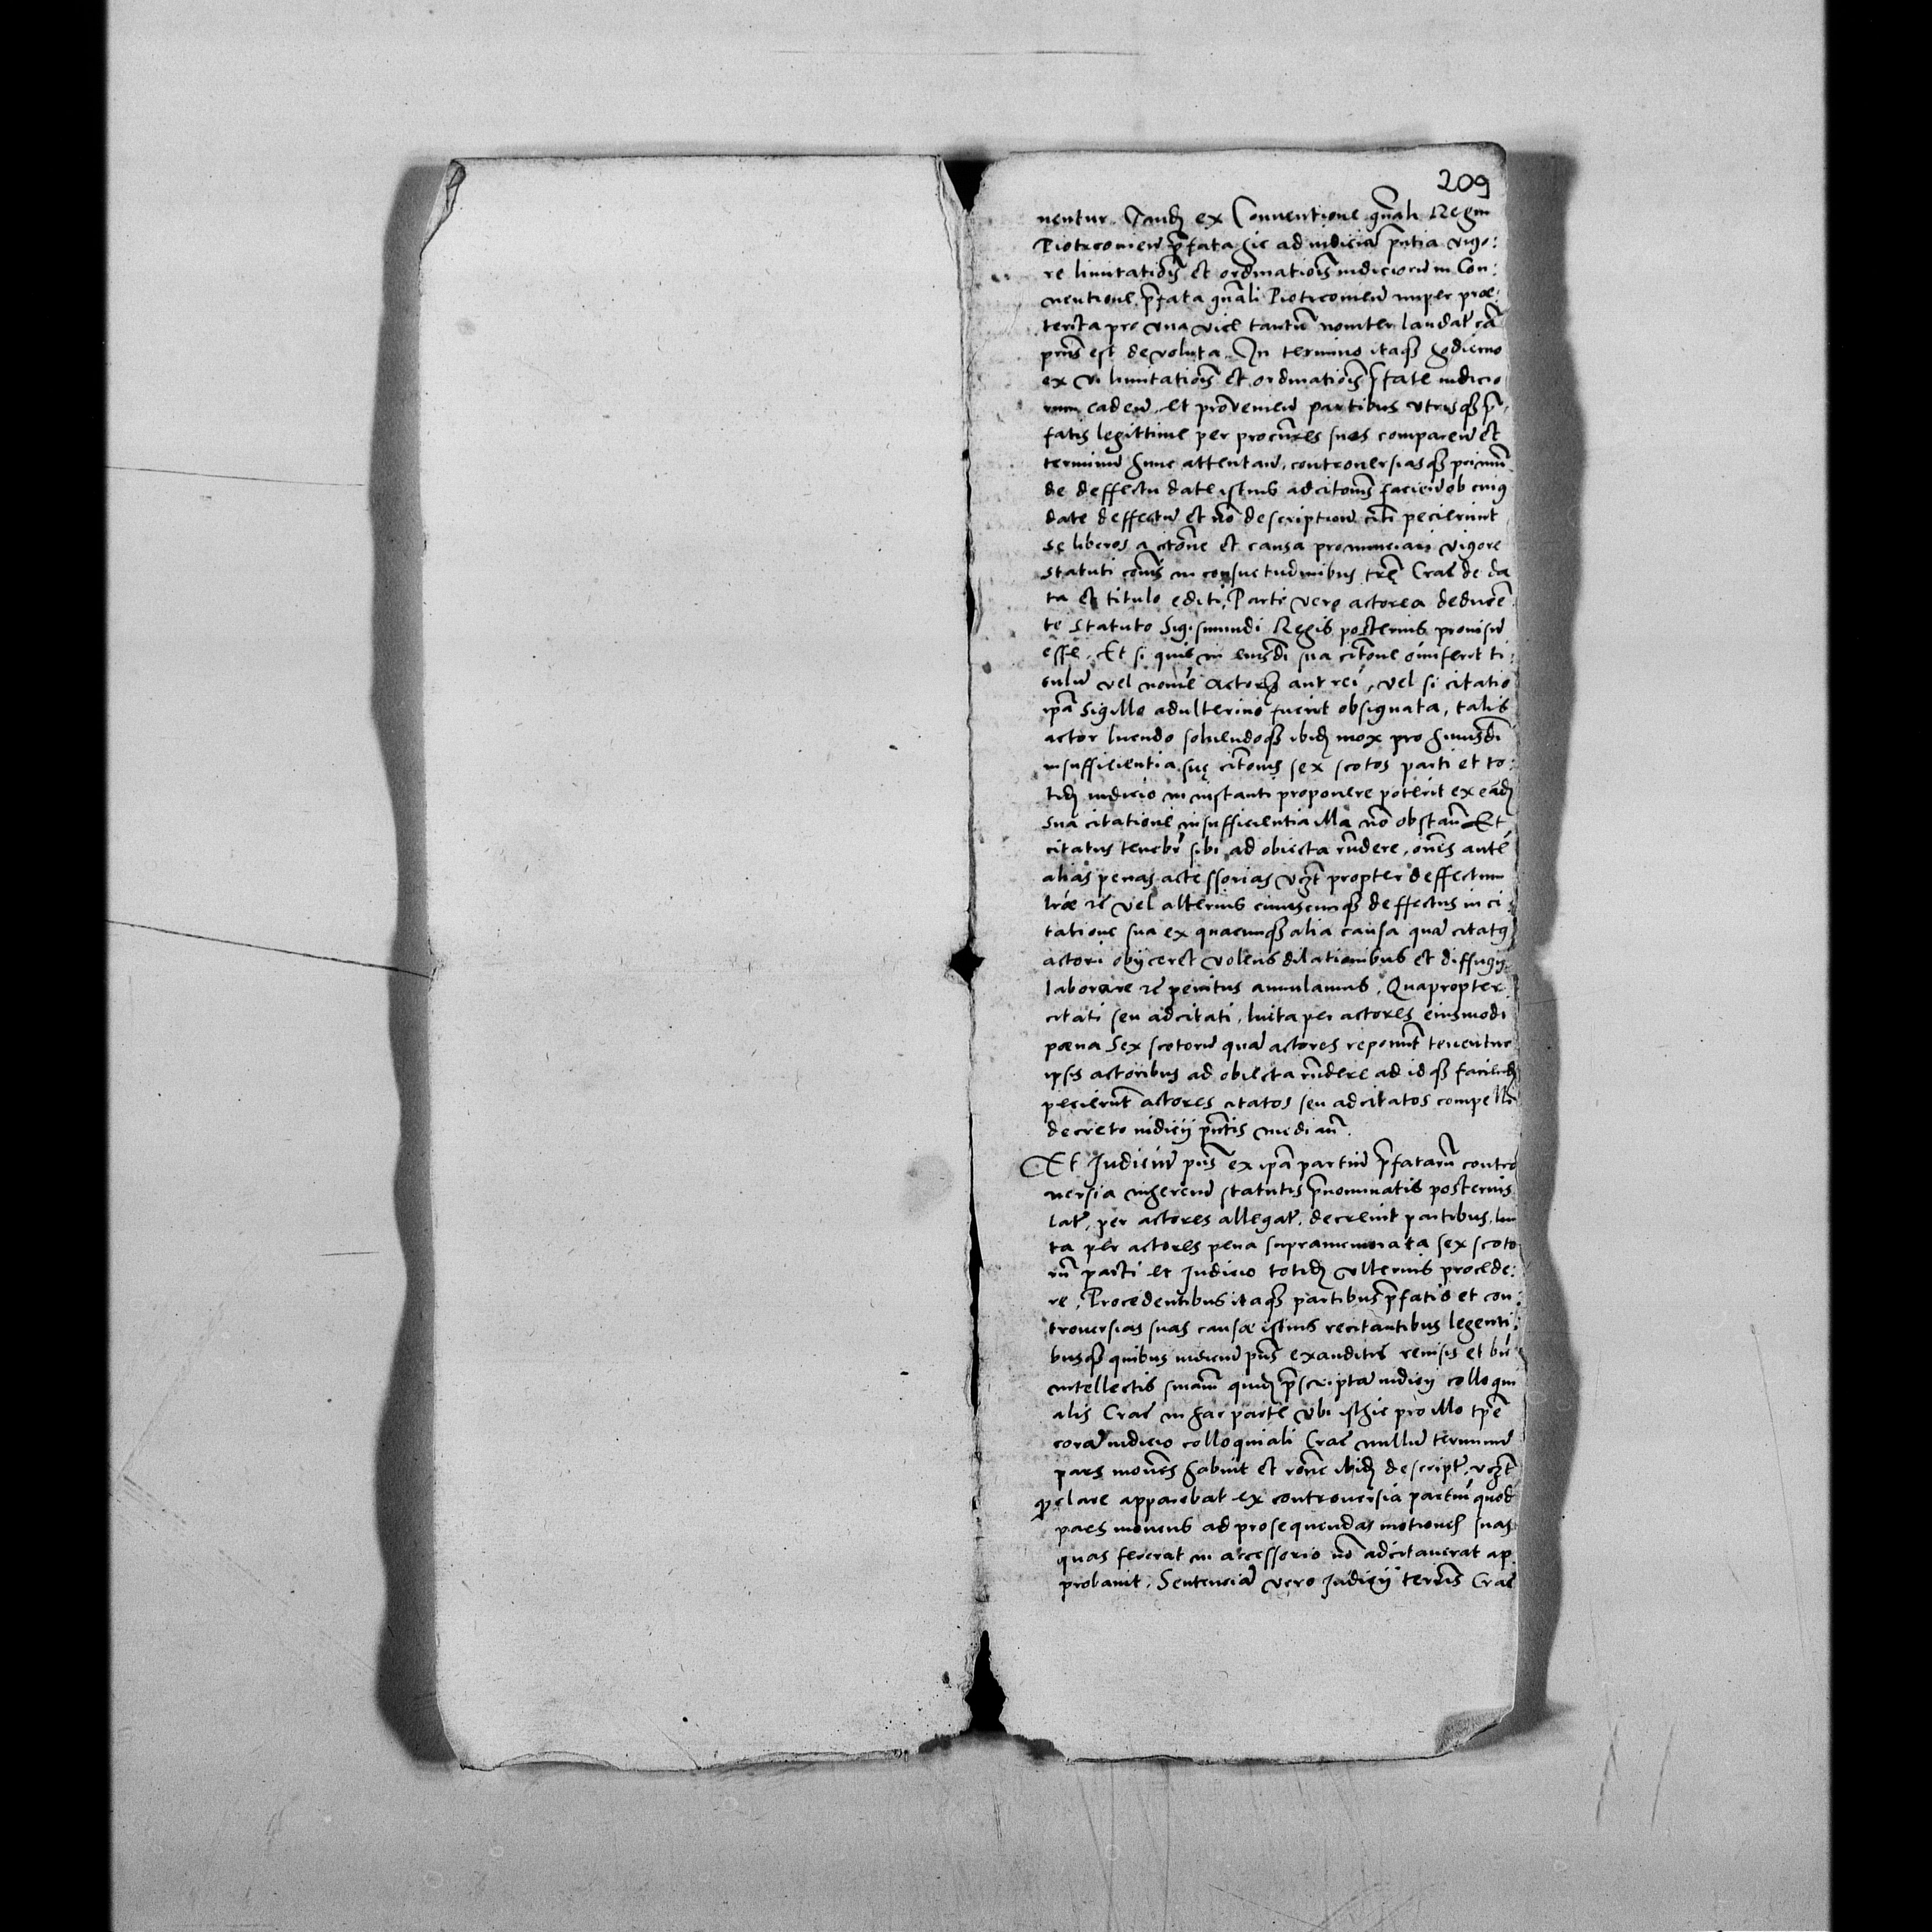 209
nentur. Tandẽ ex Conuentione gñali Regni
Piotrcouieñ p̃fata hic ad iudicia p̃ntia vigo:
re limitatiõis et ordinatiõis iudiciorũ in Con:
uentione p̃fata gñali Piotrcouieñ nuper prae:
terita pro vna vice tantũ nouiter laudaẽ cã
pñs est deuoluta. In termino itaq3 hodierno
ex vi limitatiõis et ordinatiõis p̃fate iudicio
rum cadeñ et proueñieñ partibus vtrisq3 p̃:
fatis legittime per procũres suos compareñ et
terminũ hunc attentañ. controuersiasq3 primũ
de deffectu date istius adcitoñis facieñ ob cuiq
date deffectũ et nõ descriptionẽ citi pecierunt
se liberos a citoñe et causa pronunciari vigore
statuti coñis in consuetudinibus trẽ Craĉ de da
ta et titulo editi, Parte vero actorea deducẽ
te Statuto Sigismundi Regis posterius prouisũ
esse. Et si quis in eiusdi sua citoñe omiserit ti:
tulũ vel nomẽ actoris aut rei, vel si citatio
ipã Sigillo adulterino fuerit obsignata, talis
actor luendo soluendoq3 ibidẽ mox pro huiusdi
insufficientia suę citoñis sex scotos parti et to:
tidẽ iudicio in instanti proponere poterit ex eadẽ
sua citatione insufficientia illa nõ obstañ Et
citatus tenebr̃ sibi ad obiecta rñdere, oñes autẽ
alias penas accessorias vz̃t propter deffectum
lr̃ae r̃c vel alterius cuiuscunq3 deffectus in ci:
tatione sua ex quacunq3 alia causa quã citatq
actori obijceret volens dilationibus et diffugijs
laborare r̃c penitus annulamus. Quapropter
citati seu adcitati, luita per actores eiusmodi
paena Sex scotorũ quã actores reponũt tenentur
ipsis actoribus ad obiecta rñdere ad idq3 faciendũ
pecierũt actores citatos seu adcitatos compelli
decreto iudicij p̃ntis mediañ.
Et Judiciũ pñs ex ipã partiũ p̃fatarũ contro
uersia inhereñ statutis p̃nominatis posterius
laĩ per actores allegaĩ. decreuit partibus, lui
ta per actores pena supramemorata sex scoto
rũ parti et Judicio totidẽ vlterius procede:
re. Procedentibus itaq3 partibus p̃fatis et con:
trouersias suas causae istius recitantibus legenti:
busq3 quibus iudiciũ pñs exauditis reuisis et bñ
intellectis sñiam quidẽ p̃scriptã iudicij colloqui
alis Craĉ in hac parte vbi isthic pro illo tpẽ
corã iudicio colloquiali Craĉ nullũ terminũ
pars mouẽs habuit et roñe ibidẽ descripĩ. vz̃t
q̃ clare apparebat ex controuersia partiũ quod
pars mouens ad prosequendas motiones suas
quas fecerat in accessorio nõ adcitauerat ap
probauit. Sentenciã vero Judicij terrĩs Craĉ